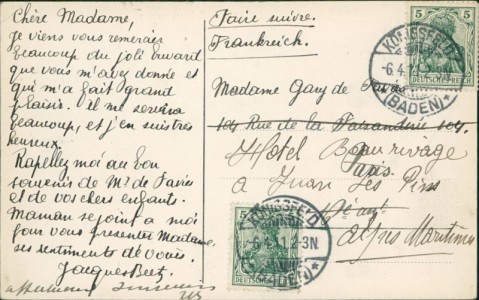 Chère Madame,
je viens vous remercier
beaucoup du joli buvard
que vous m'avez donné et
qui m'a fait grand
plaisir. Il me servira
beaucoup, et j'en suis très
heureux.
Rapellez moi au bon
souvenir de Mr de
et de vos chers enfants.
Maman se joint a moi
pour vous présenter Madame
ses sentiments de
Jacques
Faire suivre.
Frankreich.
Madame Gary de
104 Rue de la Faisanderie 104.
Hôtel Beau rivage
Paris.
a Juan Les Pins
Alpes Maritimes
5 5
DEUTSCHES REICH
KÖNIGSFELD
(BADEN)
KÖNIGSFELD
6.4.11.2-3N.
(BADEN)